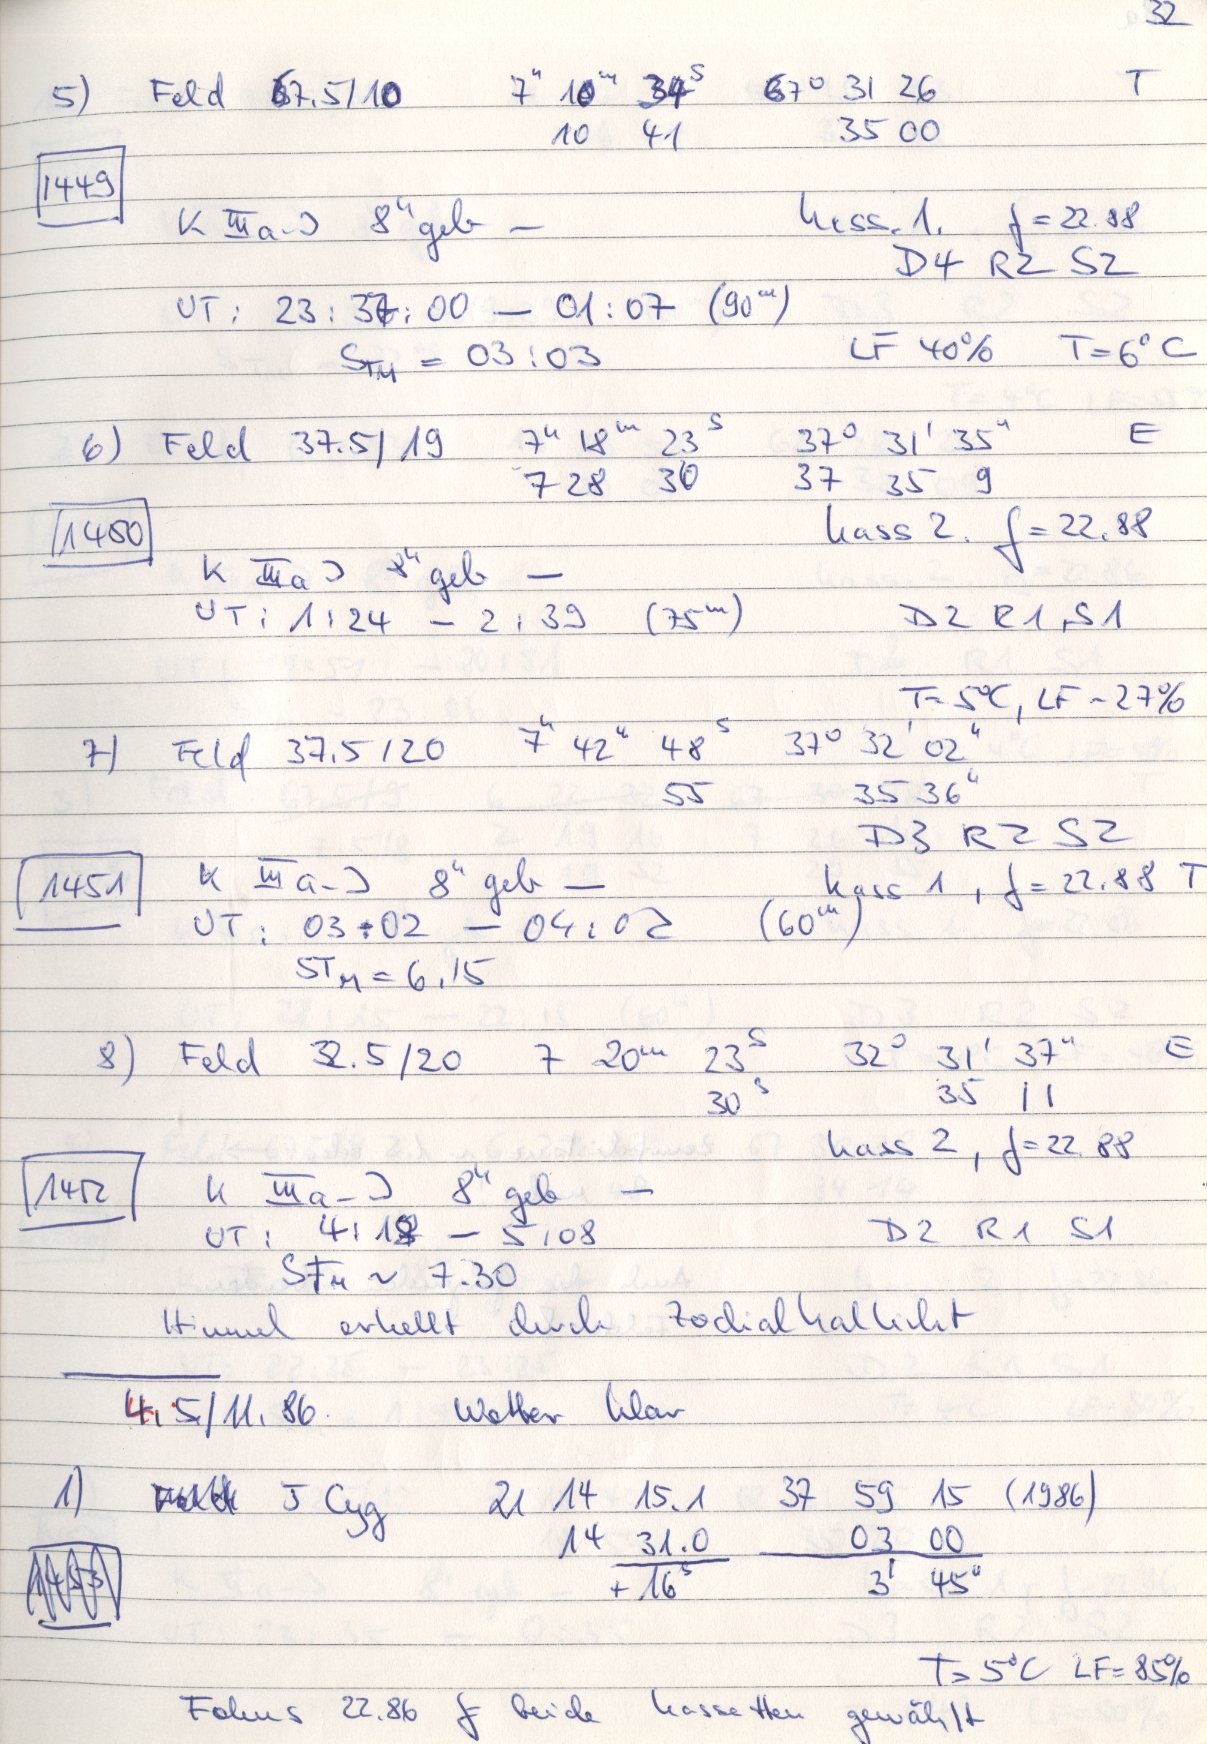 32
5) Feld 67.5/10 7h 10m 34s 67° 31 26 T
10 41 35 00
1449
K IIIa-J 8h geb — Kass. 1. f = 22.88
D4 R2 S2
UT: 23:37:00 — 01:07 (90m)
STM = 03:03 LF 40% T=6°C
6) Feld 37.5/19 7h 18m 23s 37° 31' 35" E
7 28 30 37 35 9
1450
Kass 2. f = 22.88
K IIIa J 8h geb —
UT: 1:24 — 2:39 (75m) D2 R1, S1
T= 5°C, LF ~ 27%
7) Feld 37.5/20 7h 42m 48s 37° 32' 02"
55 35 36"
D3 R2 S2
1451
K IIIa-J 8h geb — Kass 1, f = 22.88 T
UT: 03:02 — 04:02 (60m)
STM = 6.15
8) Feld 32.5/20 7 20m 23s 32° 31' 37" E
30s 35 11
Kass 2, f = 22.88
1452
K IIIa-J 8h geb —
UT: 4:18 — 5:08 D2 R1 S1
STM ~ 7.30
Himmel erhellt durch Zodiakallicht
4.5/11.86. Wetter klar
1) J Cyg 21 14 15.1 37 59 15 (1986)
14 31.0 03 00
1453
+16s 3' 45"
T= 5°C LF= 85%
Fokus 22.86 f beide Kassetten gewählt